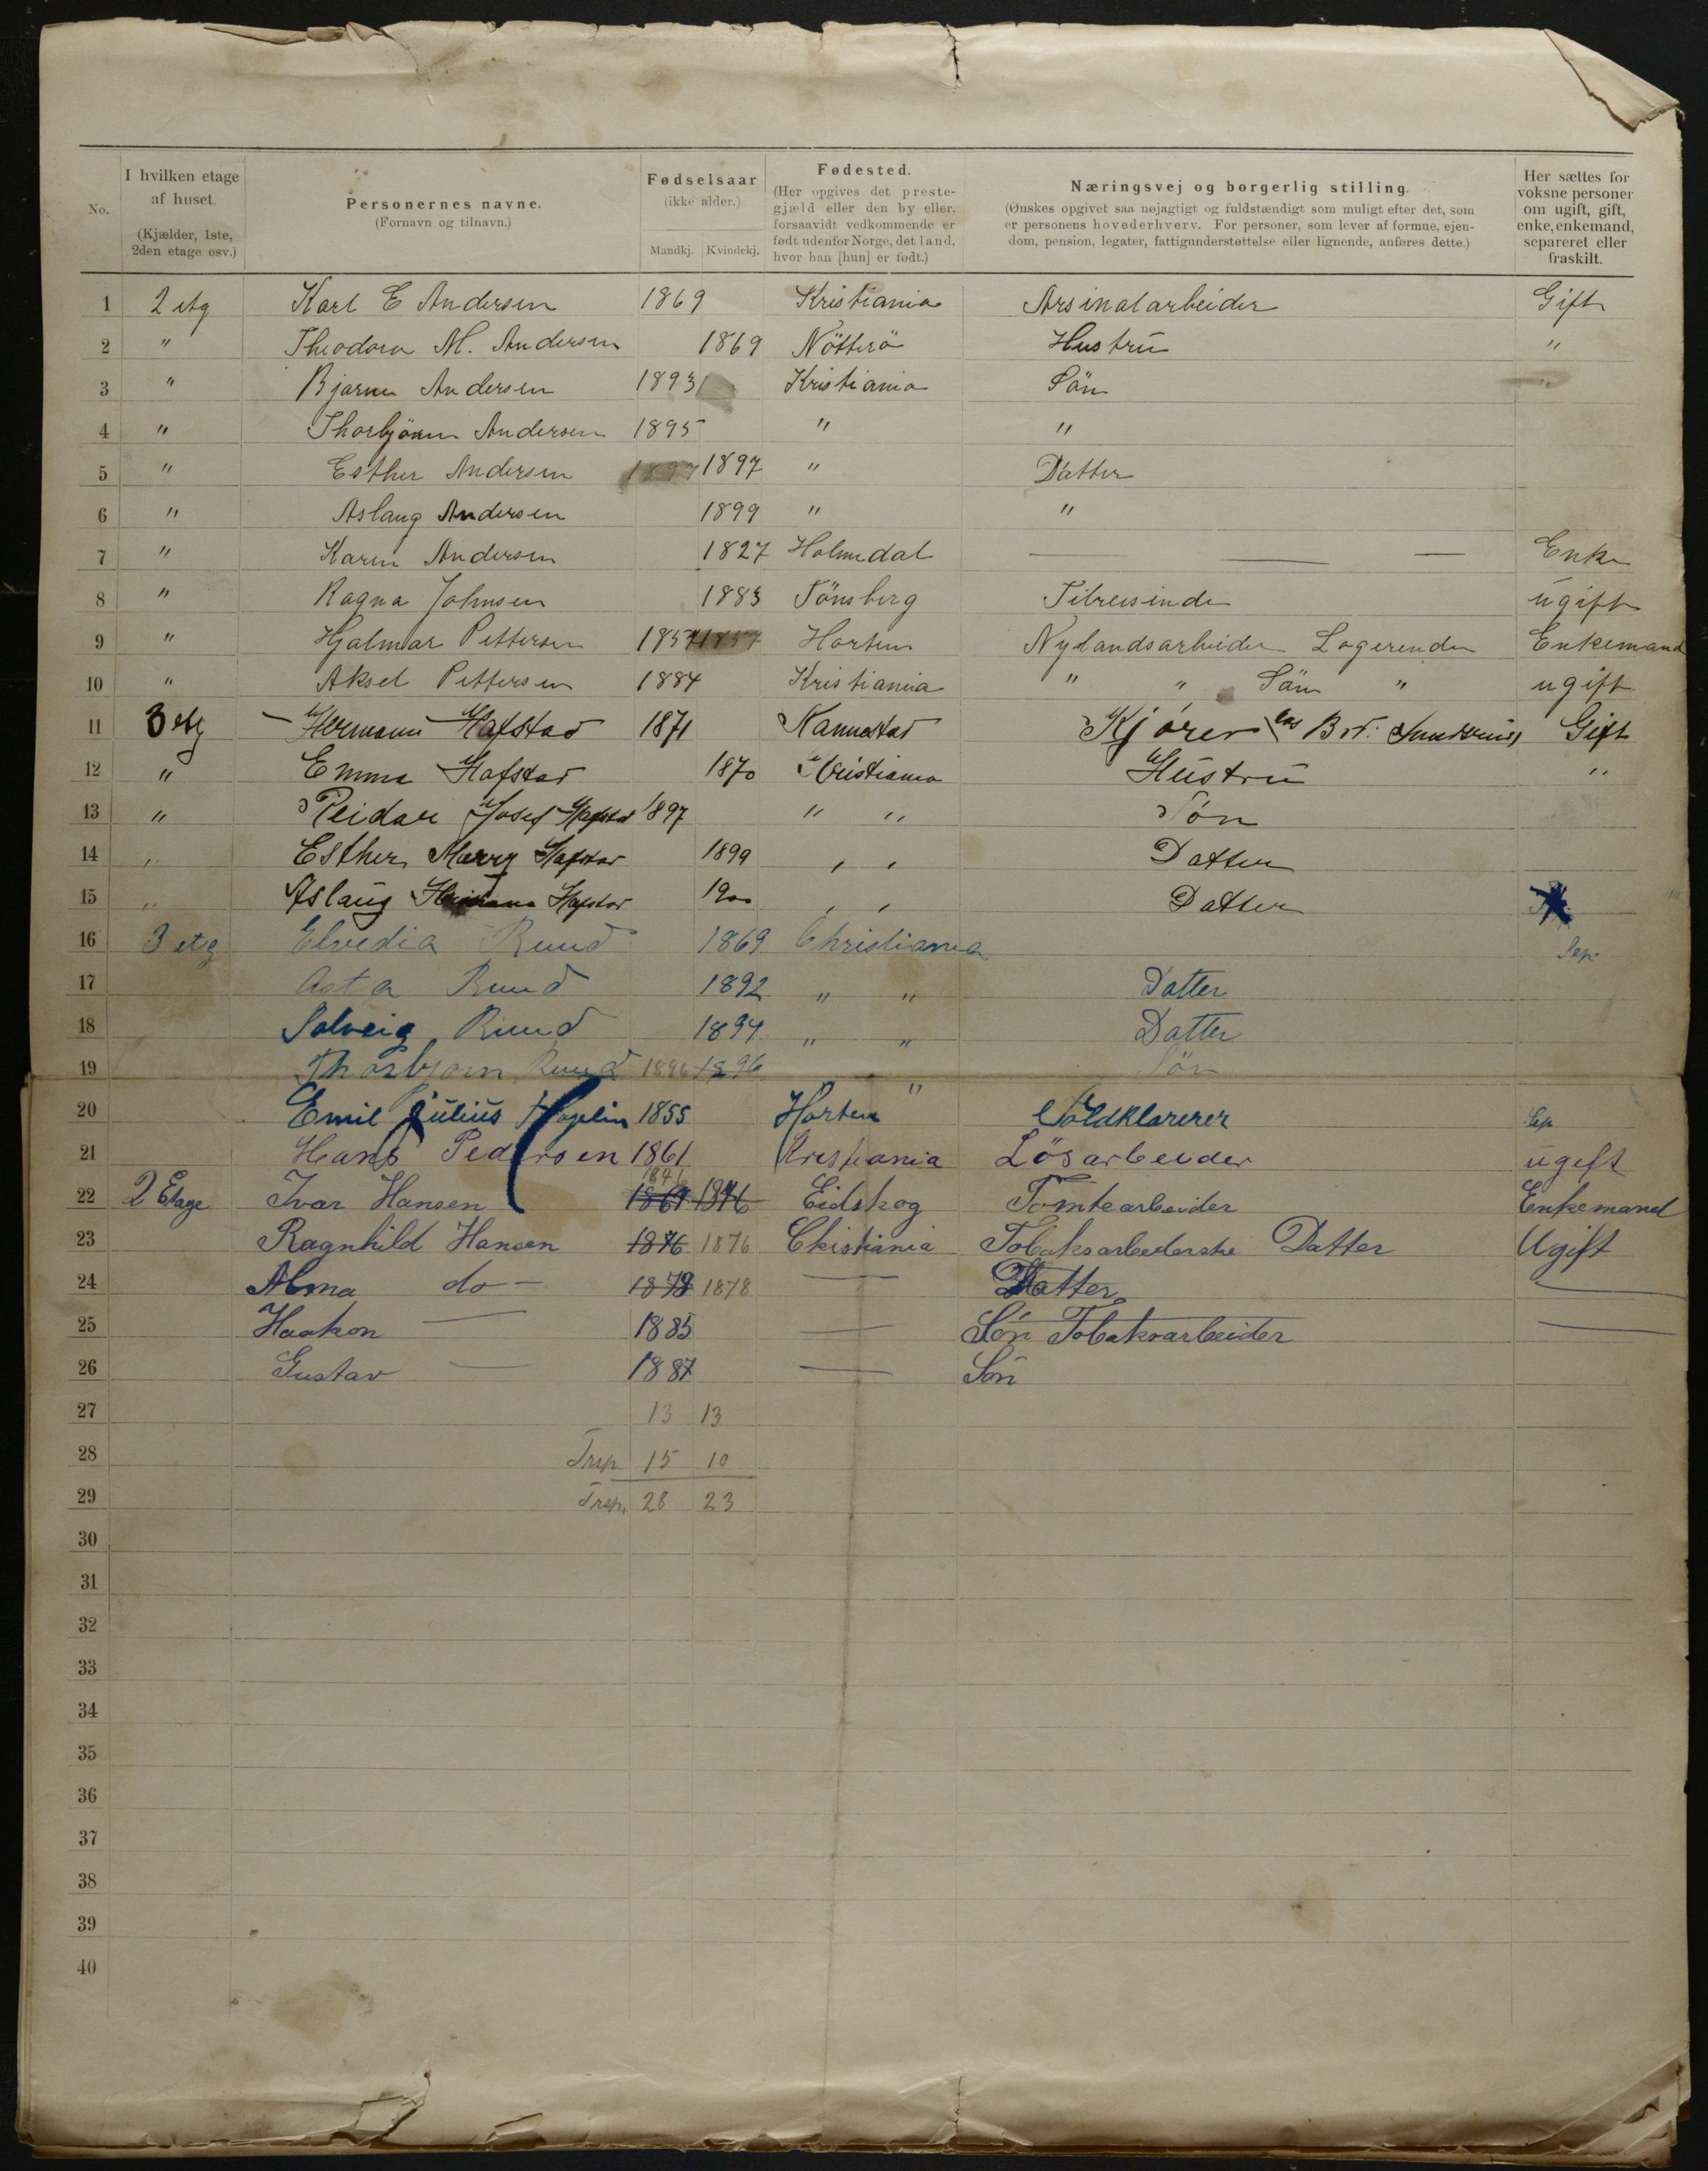 No. | I hvilken etage af huset. (Kjælder, 1ste, 2den etage osv.) | Personernes navne. (Fornavn og tilnavn.) | Fødselsaar (ikke alder.) Mandkj. Kvindekj. | Fødested. (Her opgives det prestegjæld eller den by eller, forsaavidt vedkommende er født udenfor Norge, det land, hvor han [hun] er født.) | Næringsvej og borgerlig stilling. (Ønskes opgivet saa nøjagtigt og fuldstændigt som muligt efter det, som er personens hovederhverv. For personer, som lever af formue, ejendom, pension, legater, fattigunderstøttelse eller lignende, anføres dette.) | Her sættes for voksne personer om ugift, gift, enke, enkemand, separeret eller fraskilt.
1 2 etg Karl E Andersen 1869 Kristiania Arsinalarbeider Gift
2 " Theodora M. Andersen 1869 Nötterö Hustrü "
3 " Bjarne Andersen 1893 Kristiania Sön "
4 " Thorbjörn Andersen 1895 " "
5 " Esther Andersen 1897 1897 " Datter
6 " Aslaug Andersen 1899 " "
7 " Karen Andersen 1827 Holmedal — — — Enke
8 " Ragna Johnsen 1883 Tönsberg Tilreisende ugift
9 " Hjalmar Pettersen 1857 1857 Horten Nylandsarbeider Logerende Enkemand
10 " Aksel Pettersen 1884 Kristiania " " Sön " ugift
11 3 etg Hermann Hafstad 1871 Kjører Gift
12 " Emma Hafstad 1870 Kristiania Hüstrü "
13 " Reidar Josef Hafstad 1897 " " Søn
14 " Esther Marry Hafstad 1899 " " Datter
15 " Aslaug Hafstad 1900 " " Datter
16 3 etg Elvedia Ruud 1869 Christiania Sep.
17 Asta Ruud 1892 " " Datter
18 Solveig Ruud 1894 " " Datter
19 Thorbjørn Ruud 1896 1896 " Søn
20 Emil Julius 1855 Horten Toldklarerer Sep
21 Hans Pedersen 1861 Kristiania Lösarbeider ugift
22 2 Etage Ivar Hansen 1846 1864 1846 Eidskog Tomtearbeider Enkemand
23 Ragnhild Hansen 1876 1876 Chistiania Tobaksarbeiderske Datter Ugift
24 Alma do — 1878 1878 — Datter —
25 Haakon — 1885 — Sön Tobaksarbeider —
26 Gustav — 1887 — Sön
27 13 13
28 Trsp 15 10
29 Trsp. 28 23
30
31
32
33
34
35
36
37
38
39
40